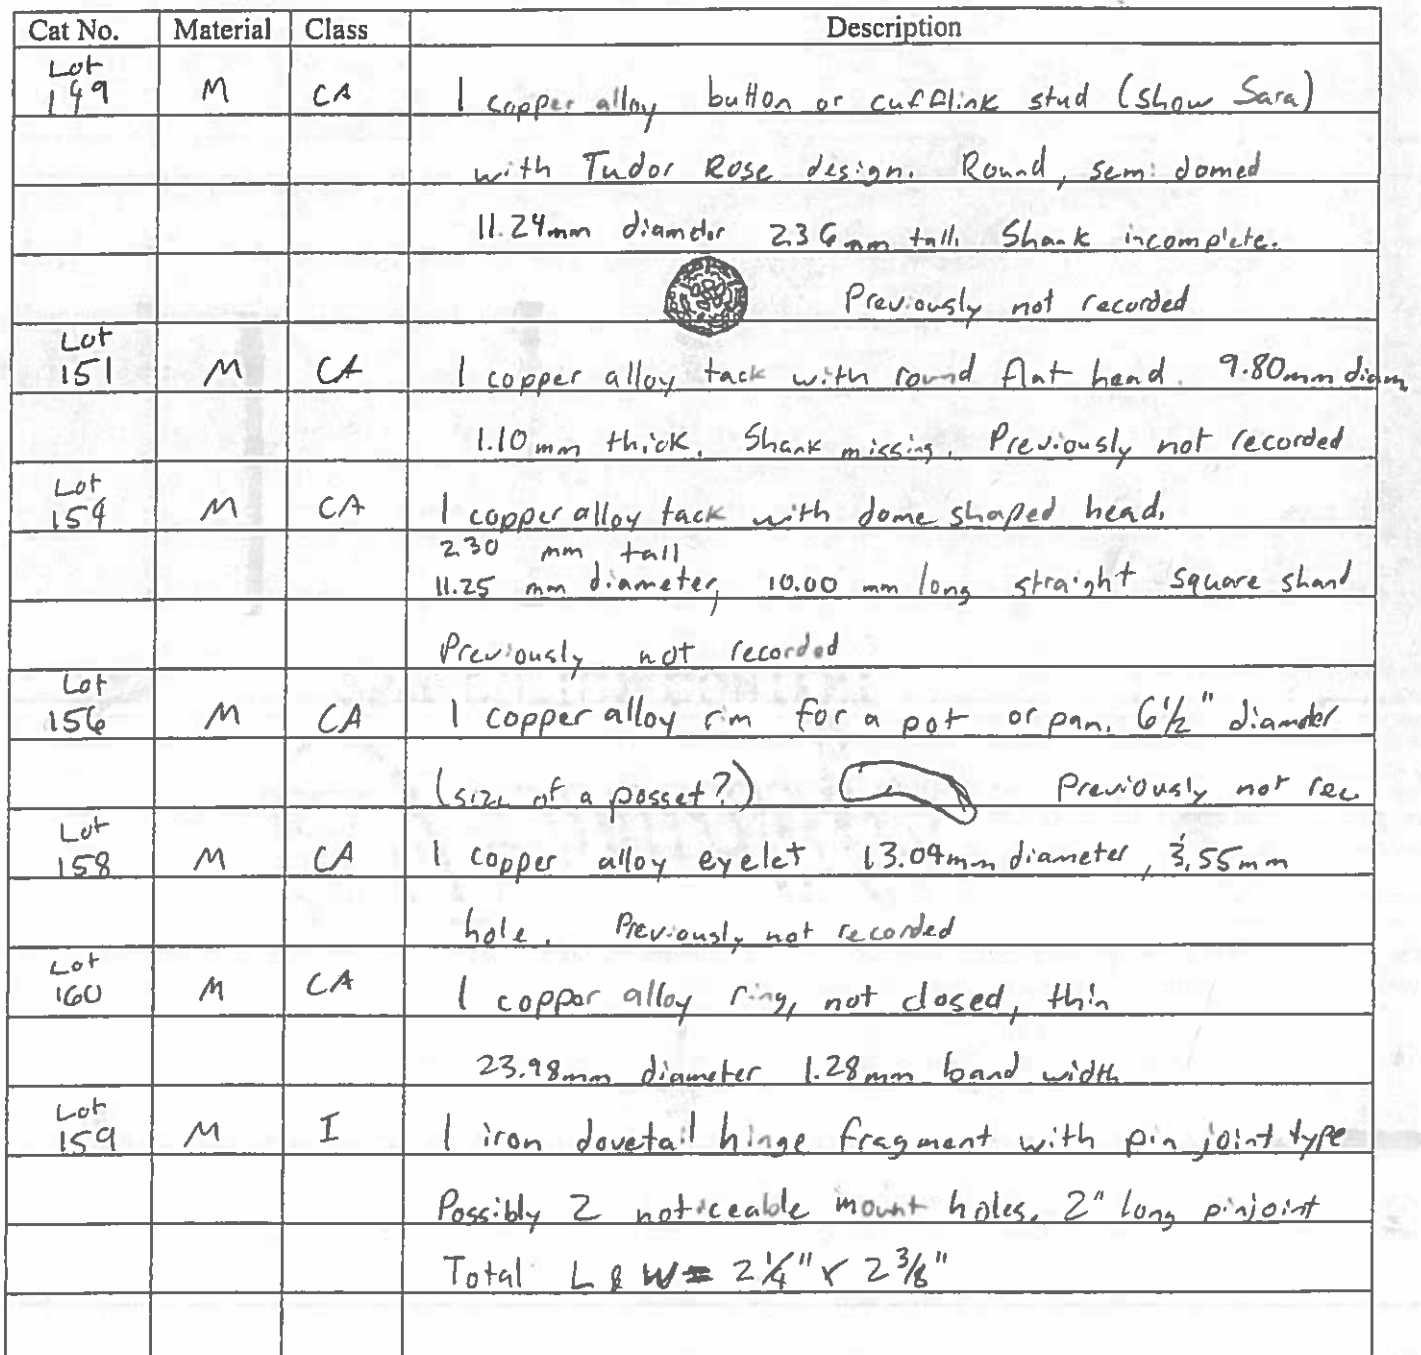 Cat No. Material Class Description
Lot
149 M CA 1 copper alloy button or cufflink stud (show Sara)
with Tudor Rose design. Round, semi domed
11.24mm diameter 2.36mm tall. Shank incomplete.
Previously not recorded
Lot
151 M CA 1 copper alloy tack with round flat head. 9.80mm diam,
1.10mm thick. Shank missing. Previously not recorded
Lot
154 M CA 1 copper alloy tack with dome shaped head.
2.30 mm tall
11.25 mm diameter, 10.00 mm long straight square shank
Previously not recorded
Lot
156 M CA 1 copper alloy rim for a pot or pan. 6 1/2" diameter
(size of a posset?) Previously not rec.
Lot
158 M CA 1 copper alloy eyelet 13.04mm diameter, 3.55mm
hole. Previously not recorded
Lot
160 M CA 1 copper alloy ring, not closed, thin
23.98mm diameter 1.28mm band width
Lot
159 M I 1 iron dovetail hinge fragment with pin joint type
Possibly 2 noticeable mount holes. 2" long pinjoint
Total L & W = 2 1/4" x 2 3/8"